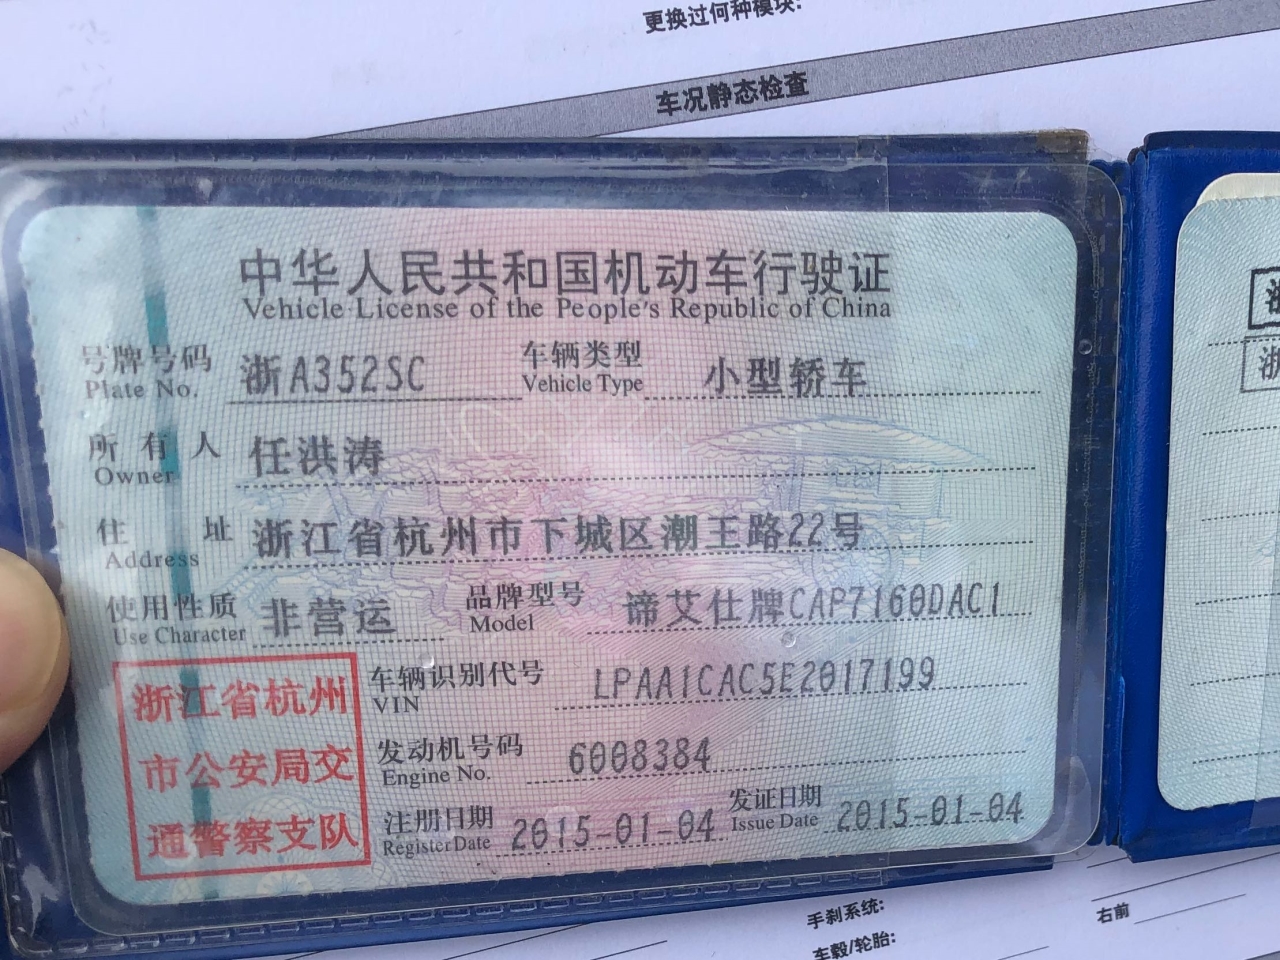 更换过何种模块:
车况静态检查
中华人民共和国机动车行驶证
Vehicle License of the People's Republic of China
号牌号码 浙A352SC 车辆类型 小型轿车
Plate No. Vehicle Type
所有人 任洪涛
Owner
住址 浙江省杭州市下城区潮王路22号
Address
使用性质 非营运 品牌型号 谛艾仕牌CAP7160DAC1
Use Character Model
浙江省杭州
市公安局交
通警察支队
车辆识别代号 LPAA1CAC5E2017199
VIN
发动机号码 6008384
Engine No.
注册日期 2015-01-04 发证日期 2015-01-04
Register Date Issue Date
浙
手刹系统:
右前
车毂/轮胎: